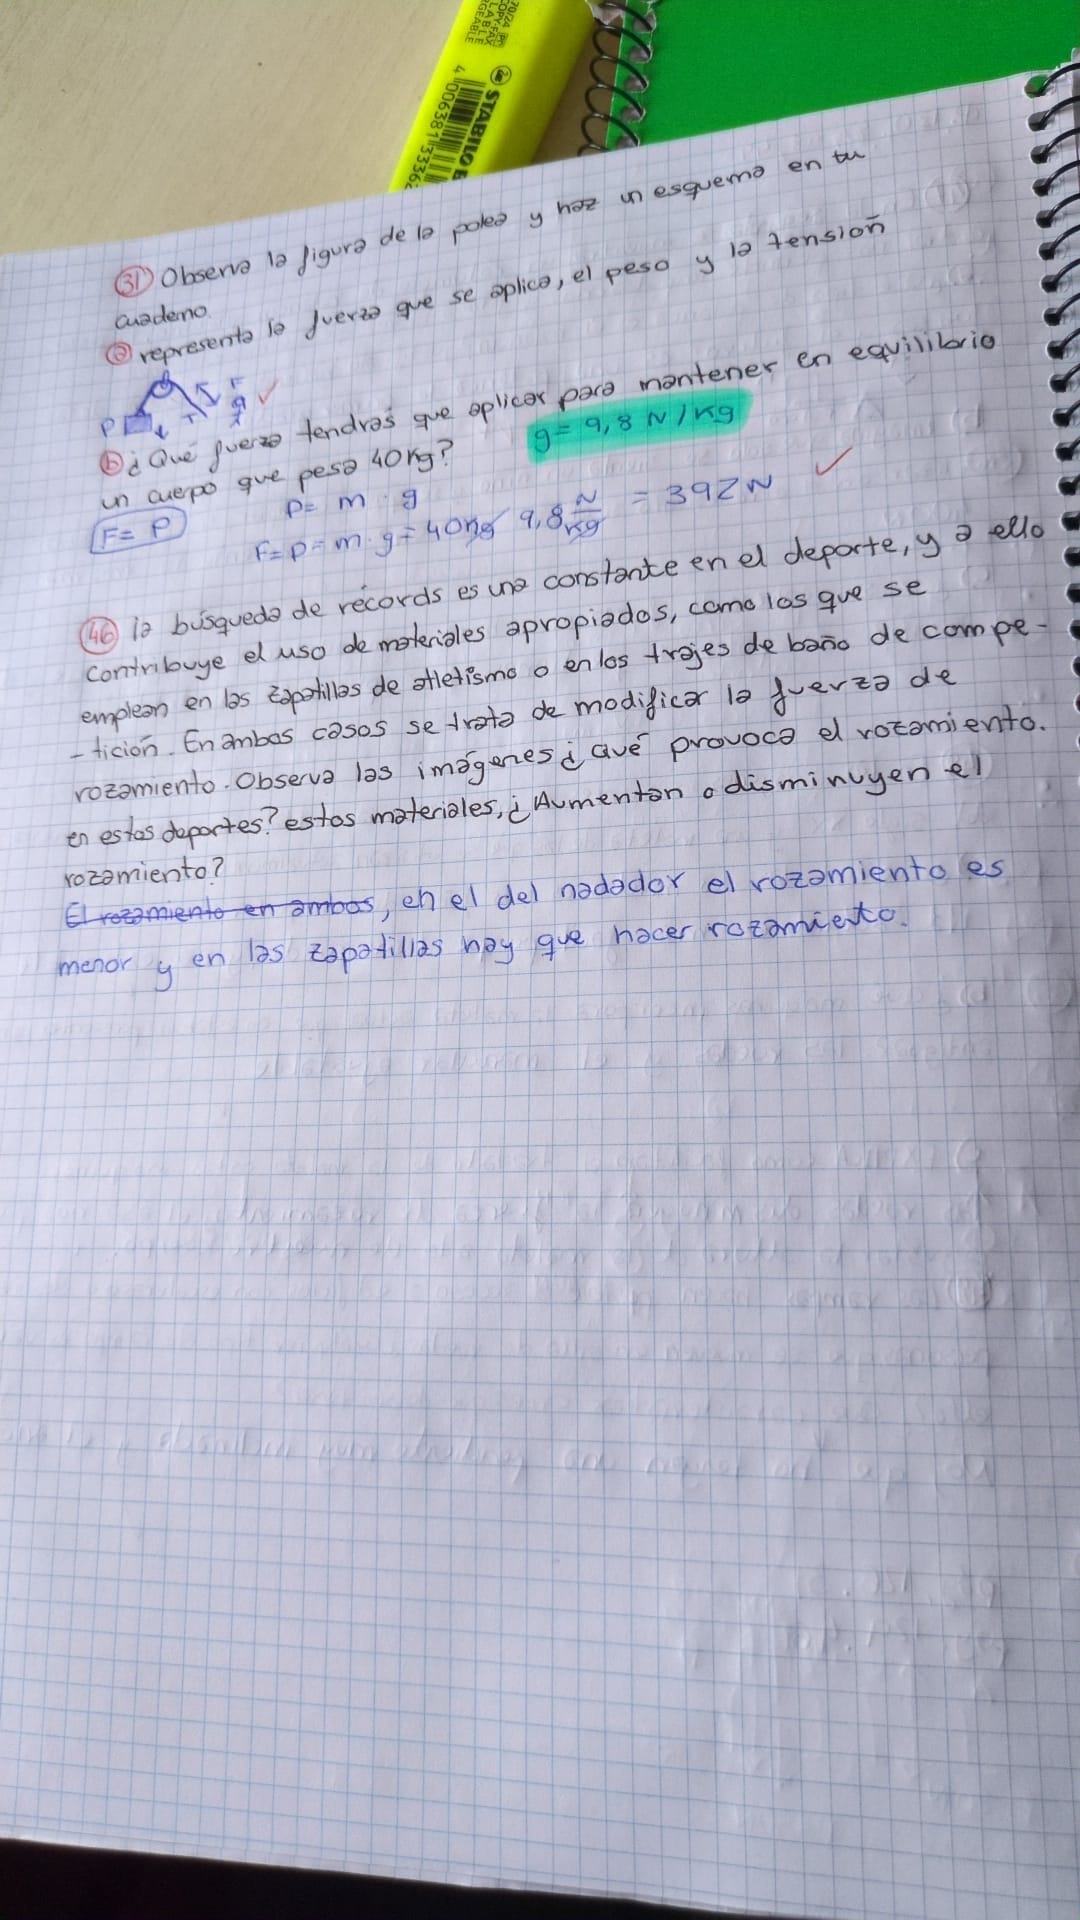 70/24
COPY-FAX
LABLE
GEABLE
STABILO B
4 006381 3336
31 Observa la figura de la polea y haz un esquema en tu
cuaderno.
a representa la fuerza que se aplica, el peso y la tensión
P T F
b ¿Qué fuerza tendrás que aplicar para mantener en equilibrio
un cuerpo que pesa 40 Kg? g = 9,8 N/Kg
F = P P = m · g
F = P = m · g = 40 Kg 9,8 N/Kg = 392 N
46 la búsqueda de récords es una constante en el deporte, y a ello
contribuye el uso de materiales apropiados, como los que se
emplean en las zapatillas de atletismo o en los trajes de baño de compe-
-tición. En ambos casos se trata de modificar la fuerza de
rozamiento. Observa las imágenes ¿Qué provoca el rozamiento.
en estos deportes? estos materiales, ¿Aumentan o disminuyen el
rozamiento?
El rozamiento en ambos, en el del nadador el rozamiento es
menor y en las zapatillas hay que hacer rozamiento.